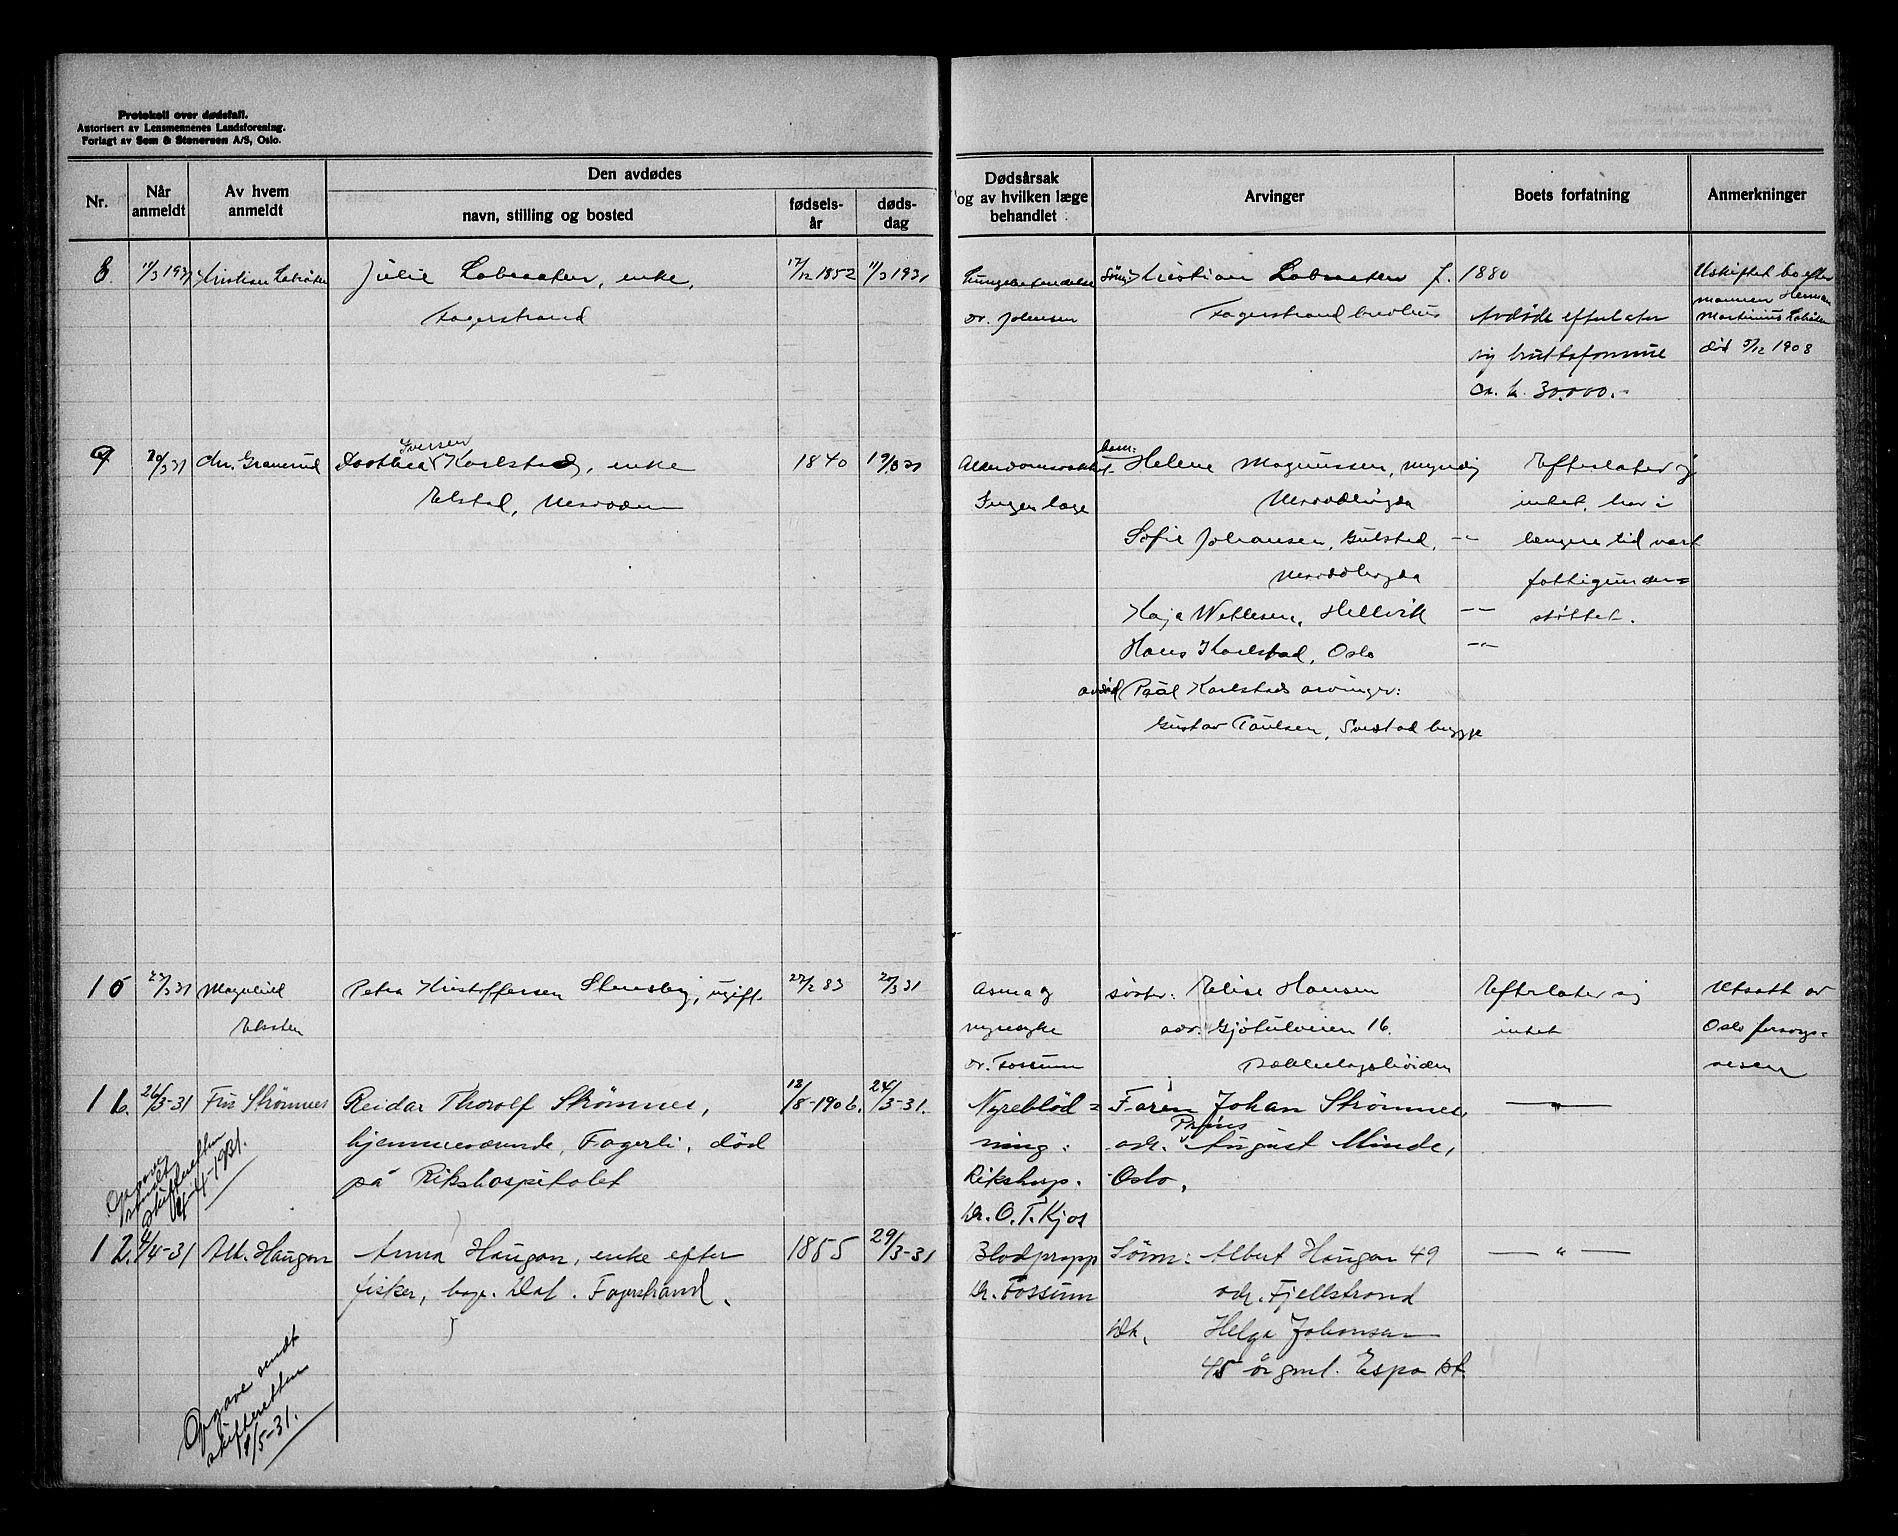 Protokoll over dødsfall.
Autorisert av Lensmennenes Landsforening.
Forlagt av Sem & Stenersen A/S, Oslo.
Nr.
Når anmeldt
Av hvem anmeldt
Den avdødes
navn, stilling og bosted
fødsels-år
døds-dag
Dødsårsak og av hvilken læge behandlet
Arvinger
Boets forfatning
Anmerkninger
8. 11/3 1931 Kristian Labraaten Julie Labraaten, enke, 17/12 1852 11/3 1931
Fagerstrand
Lungebetendelse Sønn: Kristian Labraaten f. 1880
dr. Johnsen Fagerstrand
Avdøde efterlater
sig bruttoformue
ca. kr. 30.000.-
Uskiftet bo efter
mannen Herman
Martinius Labråten
død 5/12 1908
9 20/3 31 Chr. Granerud Dorthea Iversen Karlstad, enke 1840 19/3 31
Elstad, Nesodden
Alderdomssvakhet Dom: Helene Magnussen, myndig
Ingen læge Nesoddbygda
Sofie Johansen, Gulstad, -"-
Nesoddbygda
Kaja Wetlesen, Hellvik -"-
Hans Karlstad, Oslo -"-
avdød Paal Karlstads arvinger:
Gustav Paulsen, Svestad brygge
Efterlater sig
intet, har i
lengere tid vært
fattigunder=
støttet.
10 Magnhild Petra Kristoffersen Stensby, ugift. 27/2 83 20/3 31
Elsten
Asma og søster: Elise Hansen
nyresyke adr. Gjøtulveien 16.
dr. Fossum Bekkelagshøiden
Efterlater sig
intet
Utsatt av
Oslo forsorgs=
vesen
11. 26/3-31 Fru Strømnes Reidar Thorolf Strømnes, 13/8-1906. 24/3-31.
hjemmeværende, Fagerli, død
på Rikshospitalet
Nyreblød= Faren Johan Strømnes, — " —
ning: adr. Prins August Minde,
Rikshosp. Oslo.
Dr. O. T. Kjos
Opgave
sendt
skifteretten
1/4-1931.
12. 4/4-31 Alb. Haugan Anna Haugan, enke efter 1855 29/3-31
fisker, Dal. Fagerstrand.
Blodpropp Sønn: Albert Haugan 49 — " —
Dr. Fossum adr. Fjellstrand
Dtr. Helga Johansen
45 år gml. Espa st.
Opgave sendt
skifteretten
1/5-31.